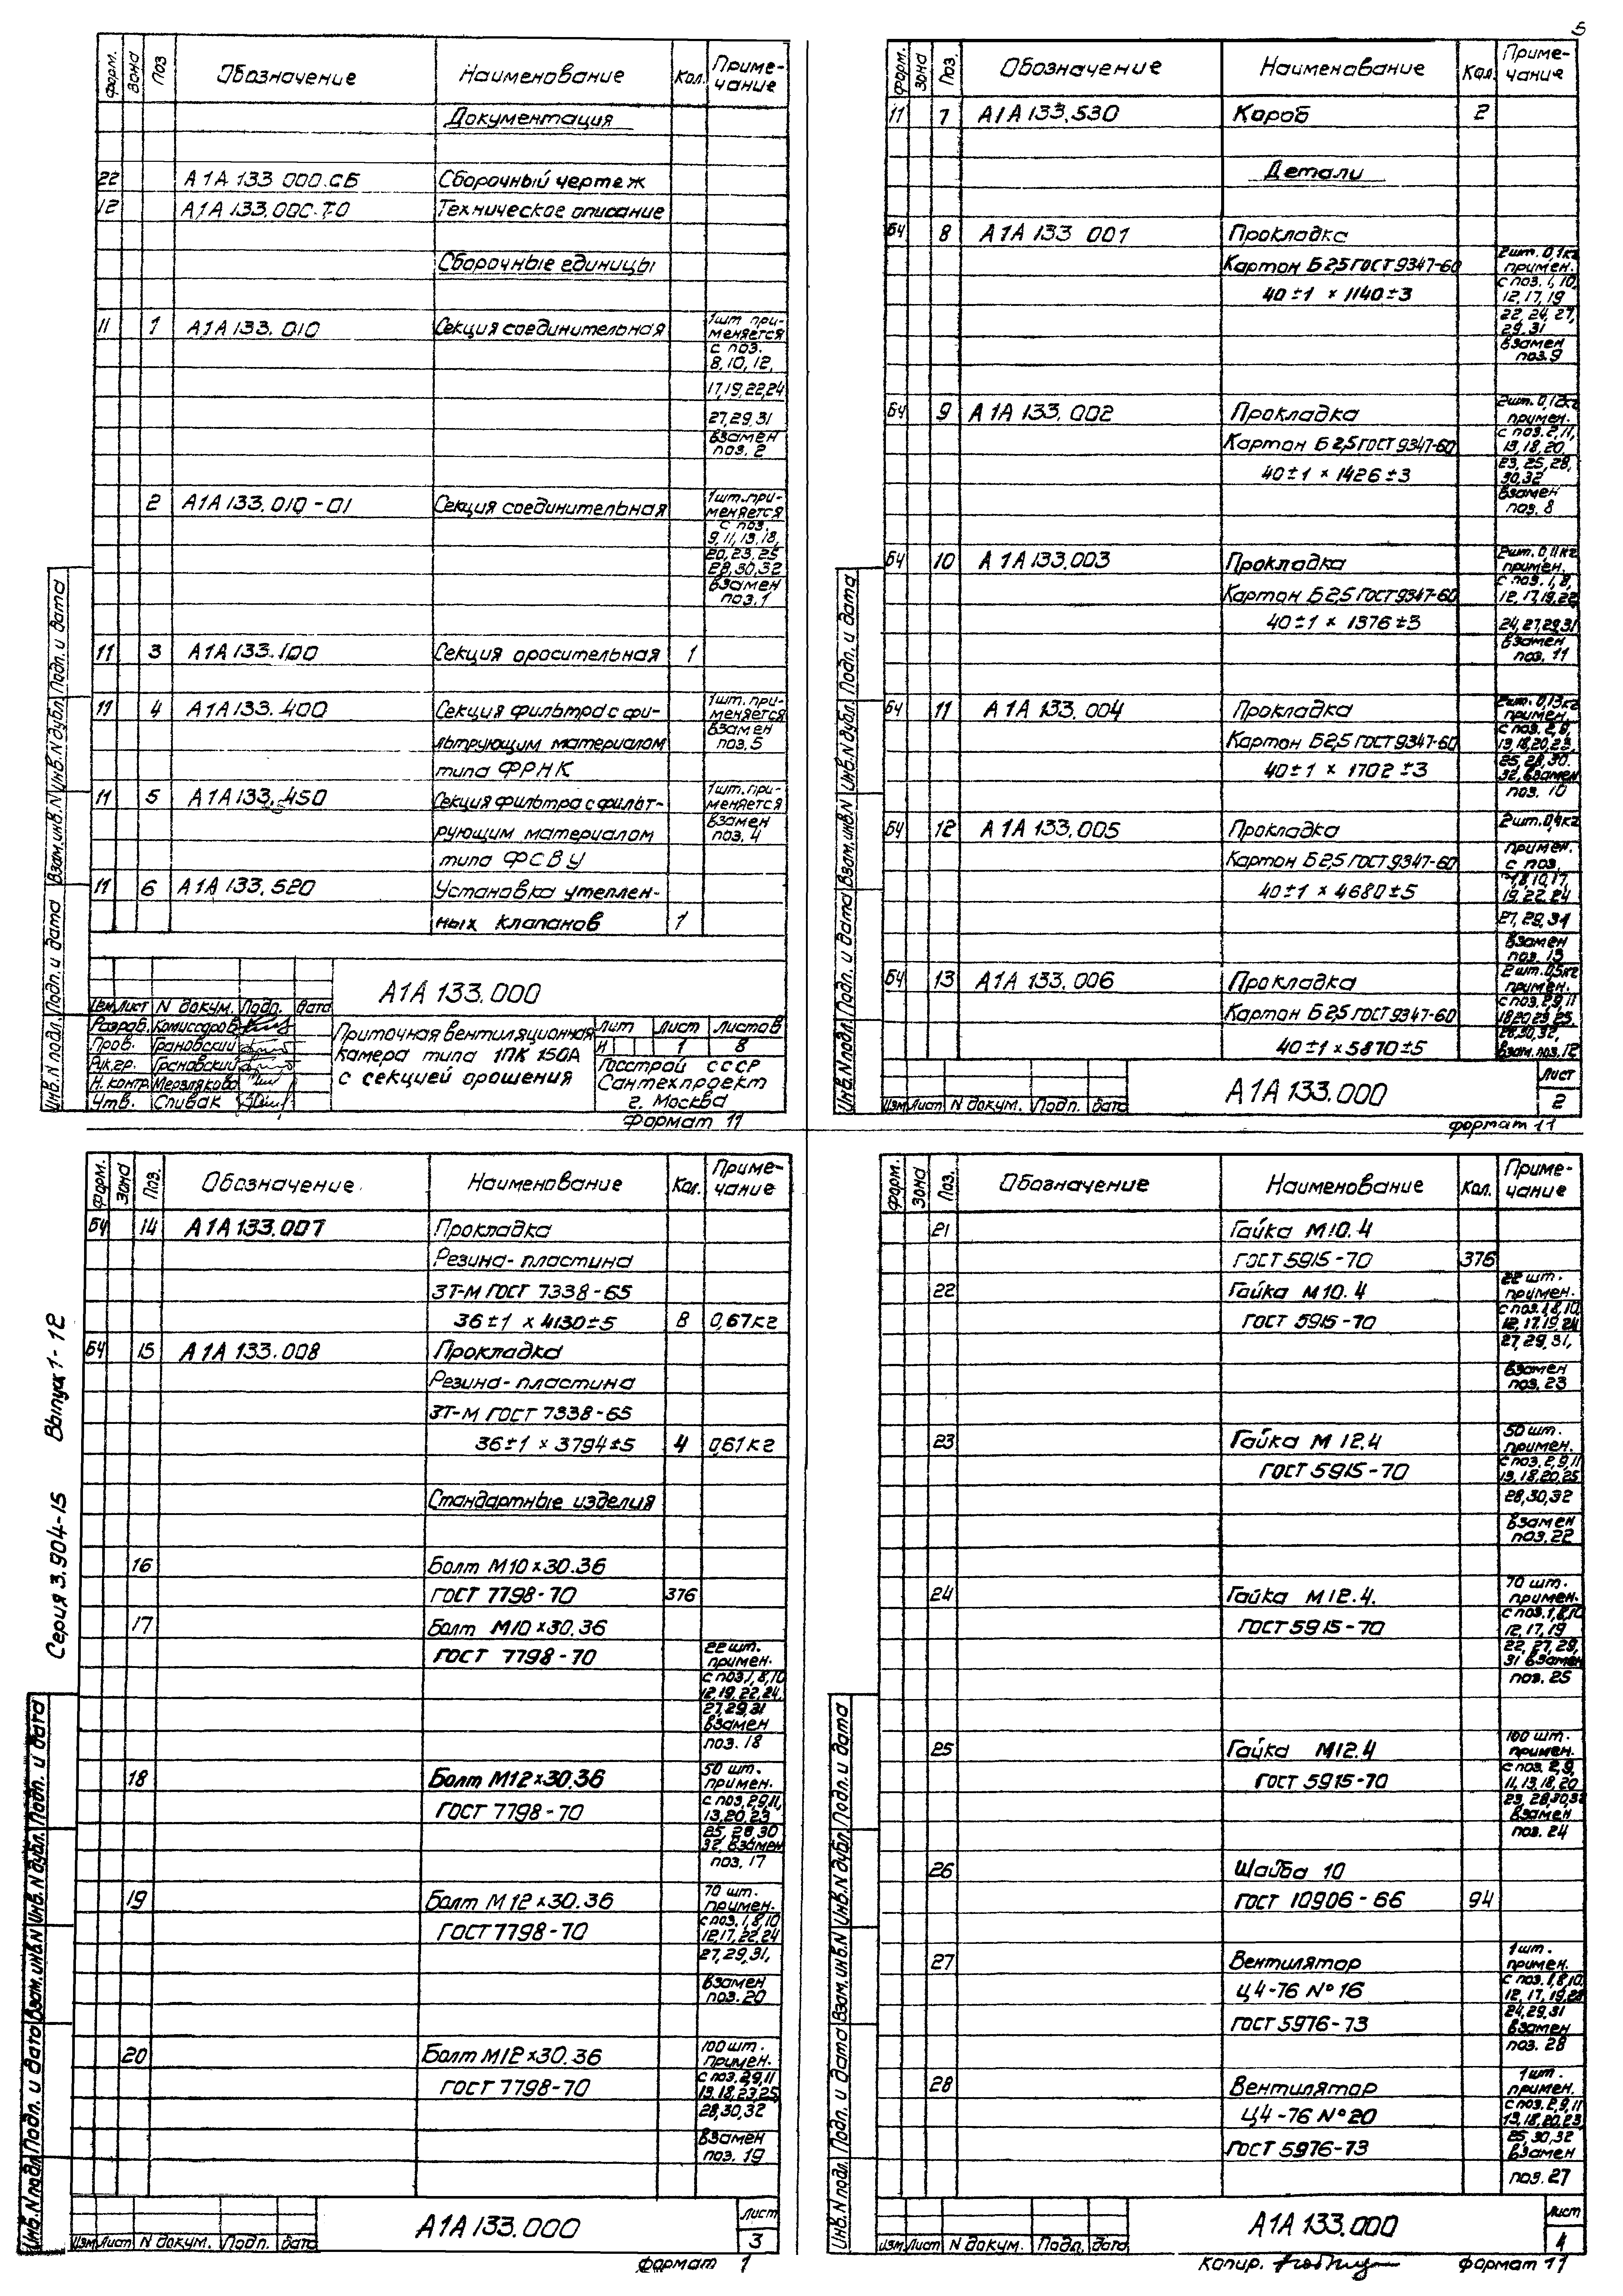 5
форм. Зона Поз Обозначение Наименование Кол. Приме-
чание
Документация
22 А1А 133 000.СБ Сборочный чертеж
12 А1А 133.000.ТО Техническое описание
Сборочные единицы
11 1 А1А 133.010 Секция соединительная 1шт при-
меняется
с поз.
8,10,12,
17,19,22,24
27,29,31
взамен
поз. 2
2 А1А 133.010-01 Секция соединительная 1шт.при-
меняется
с поз.
9,11,13,18,
20,23,25
28,30,32
взамен
поз.1
11 3 А1А 133.100 Секция оросительная 1
11 4 А1А 133.400 Секция фильтра с фи- 1шт. при-
меняется
льтрующим материалом взамен
поз.5
типа ФРНК
11 5 А1А 133.450 Секция фильтра с фильт- 1шт.при-
меняется
рующим материалом взамен
поз. 4
типа ФСВУ
11 6 А1А 133.520 Установка утеплен-
ных клапанов 1
А1А 133.000
Изм Лист N докум. Подп. Дата
Разраб. Комиссаров
Пров. Грановский
Рук.гр. Грановский
Н. контр. Мерзлякова
Утв. Спивак
Приточная вентиляционная
камера типа 1ПК 150А
с секцией орошения
Лит Лист Листов
И 1 8
Госстрой СССР
Сантехпроект
г. Москва
Формат 11
Инв.N подл. Подп. и дата Взам.инв.N Инв.N дубл. Подп. и дата
форм. Зона Поз. Обозначение Наименование Кол. Приме-
чание
11 7 А1А 133.530 Короб 2
Детали
БЧ 8 А1А 133 001 Прокладка
Картон Б 2,5 ГОСТ 9347-60
40±1 × 1140±3
2шт. 0,1кг
примен.
с поз. 1, 10,
12, 17, 19
22, 24, 27,
29, 31
взамен
поз.9
БЧ 9 А1А 133.002 Прокладка
Картон Б 2,5 ГОСТ 9347-60
40±1 × 1426±3
2шт. 0,12кг
примен.
с поз. 2, 11,
13, 18, 20,
23, 25, 28,
30,32
взамен
поз. 8
БЧ 10 А1А 133.003 Прокладка
Картон Б 2,5 ГОСТ 9347-60
40±1 × 1376±3
2шт. 0,11кг
примен.
с поз. 1, 8,
12, 17,19,22
24,27,29,31
взамен
поз. 11
БЧ 11 А1А 133.004 Прокладка
Картон Б2,5 ГОСТ 9347-60
40±1 × 1702±3
2шт. 0,13кг
примен.
с поз. 2,9,
13,18,20,23,
25, 28, 30.
32, взамен
поз. 10
БЧ 12 А1А 133.005 Прокладка
Картон Б 2,5 ГОСТ 9347-60
40±1 × 4680±5
2шт.0,4кг
примен.
с поз.
1,8,10,17,
19, 22, 24
27, 29, 31
взамен
поз. 13
БЧ 13 А1А 133.006 Прокладка
Картон Б 2,5 ГОСТ 9347-60
40±1 × 5870±5
2 шт. 0,5кг
примен.
с поз. 2,9,11
18,20,23,25,
28,30,32,
взам. поз. 12
Изм Лист N докум. Подп. Дата
А1А 133.000
Лист
2
формат 11
Инв.N подл. Подп. и дата Взам.инв.N Инв.N дубл. Подп. и дата
Серия 3.904-15 Выпуск 1-12
форм. Зона Поз. Обозначение Наименование Кол. Приме-
чание
БЧ 14 А1А 133.007 Прокладка
Резина-пластина
3Т-М ГОСТ 7338-65
36±1 × 4130±5 8 0,67кг
БЧ 15 А1А 133.008 Прокладка
Резина-пластина
3Т-М ГОСТ 7338-65
36±1 × 3794±5 4 0,61кг
Стандартные изделия
16 Болт М10×30.36
ГОСТ 7798-70 376
17 Болт М10×30.36
ГОСТ 7798-70
22шт.
примен.
с поз.1,8,10
12, 19, 22, 24,
27,29,31
взамен
поз. 18
18 Болт М12×30.36
ГОСТ 7798-70
50 шт.
примен.
с поз.2,9,11,
13,20,23
25, 28,30
32, взамен
поз. 17
19 Болт М12×30.36
ГОСТ 7798-70
70 шт.
примен.
с поз. 1, 8,10
12,17, 22,24
27, 29, 31,
взамен
поз. 20
20 Болт М12×30.36
ГОСТ 7798-70
100шт.
примен.
с поз. 2,9,11
13,18,23,25
28,30,32
взамен
поз. 19
Изм Лист N докум. Подп. Дата
А1А 133.000
Лист
3
Формат 1
Инв.N подл. Подп. и дата Взам.инв.N Инв.N дубл. Подп. и дата
форм. Зона Поз. Обозначение Наименование Кол. Приме-
чание
21 Гайка М10.4
ГОСТ 5915-70 376
22 Гайка М10.4
ГОСТ 5915-70
22 шт.
примен.
с поз. 1,8,10
12, 17,19, 24
27, 29, 31,
взамен
поз. 23
23 Гайка М 12.4
ГОСТ 5915-70
50 шт.
примен.
с поз. 2, 9, 11
13, 18,20,25
28,30,32
взамен
поз.22
24 Гайка М12.4.
ГОСТ 5915-70
70 шт.
примен.
с поз. 1, 8,10
12, 17, 19
22, 27, 29,
31 взамен
поз. 25
25 Гайка М12.4
ГОСТ 5915-70
100 шт.
примен.
с поз. 2,9,
11, 13, 18, 20
23, 28,30,32
взамен
поз. 24
26 Шайба 10
ГОСТ 10906-66 94
27 Вентилятор
Ц4-76 №16
ГОСТ 5976-73
1шт.
примен.
с поз. 1,8,10,
12, 17, 19,22
24,29,31
взамен
поз. 28
28 Вентилятор
Ц4-76 №20
ГОСТ 5976-73
1шт.
примен.
с поз. 2,9,11
13,18,20,23,
25,30,32
взамен
поз. 27
Изм Лист N докум. Подп. Дата
А1А 133.000
Лист
4
копир. формат 11
Инв.N подл. Подп. и дата Взам.инв.N Инв.N дубл. Подп. и дата